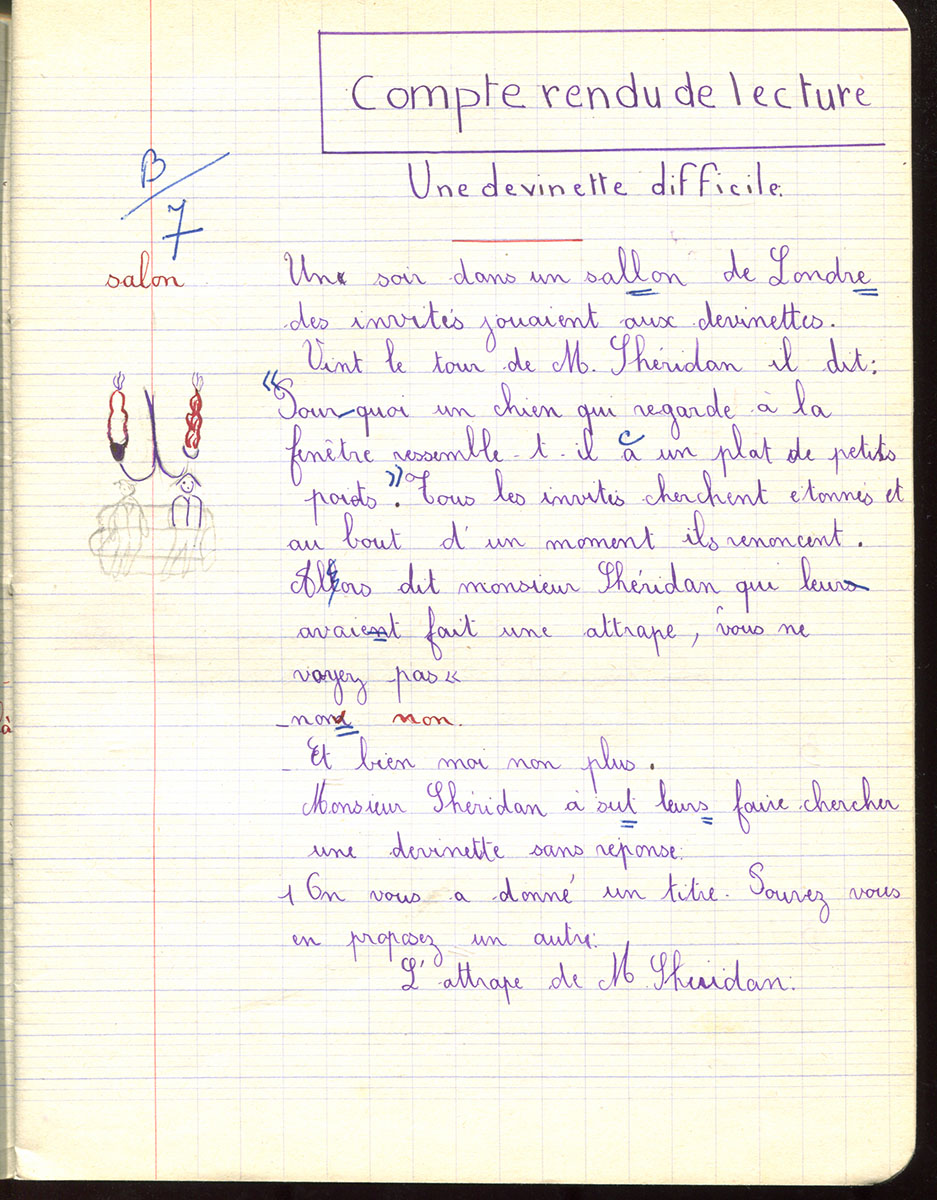 Compte rendu de lecture
Une devinette difficile.
B
7
salon
Un soir dans un sallon de Londre
des invités jouaient aux devinettes.
Vint le tour de M. Shéridan il dit:
« Pourquoi un chien qui regarde à la
fenêtre ressemble-t-il à un plat de petits
poids ». Tous les invités cherchent etonnés et
au bout d'un moment ils renoncent.
Alors dit monsieur Shéridan qui leurs
avaient fait une attrape, vous ne
voyez pas «
- non non.
- Et bien moi non plus.
Monsieur Shéridan à sut leurs faire chercher
une devinette sans réponse.
1 On vous a donné un titre. Pouvez vous
en proposez un autre:
L'attrape de M Sheridan.
à